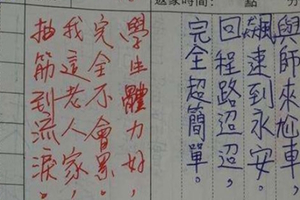 返家時間: 點 分
與師來尬車,
飆速到永安。
回程路迢迢,
完全超簡單。
學生體力好,
完全不會累。
我這老人家,
抽筋到流淚。